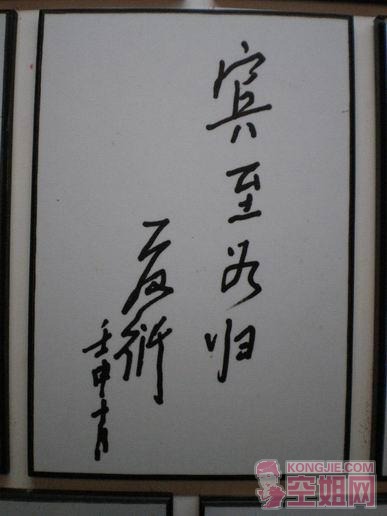 宾至如归
夏衍
壬申十月
KONGJIE.COM
空姐网